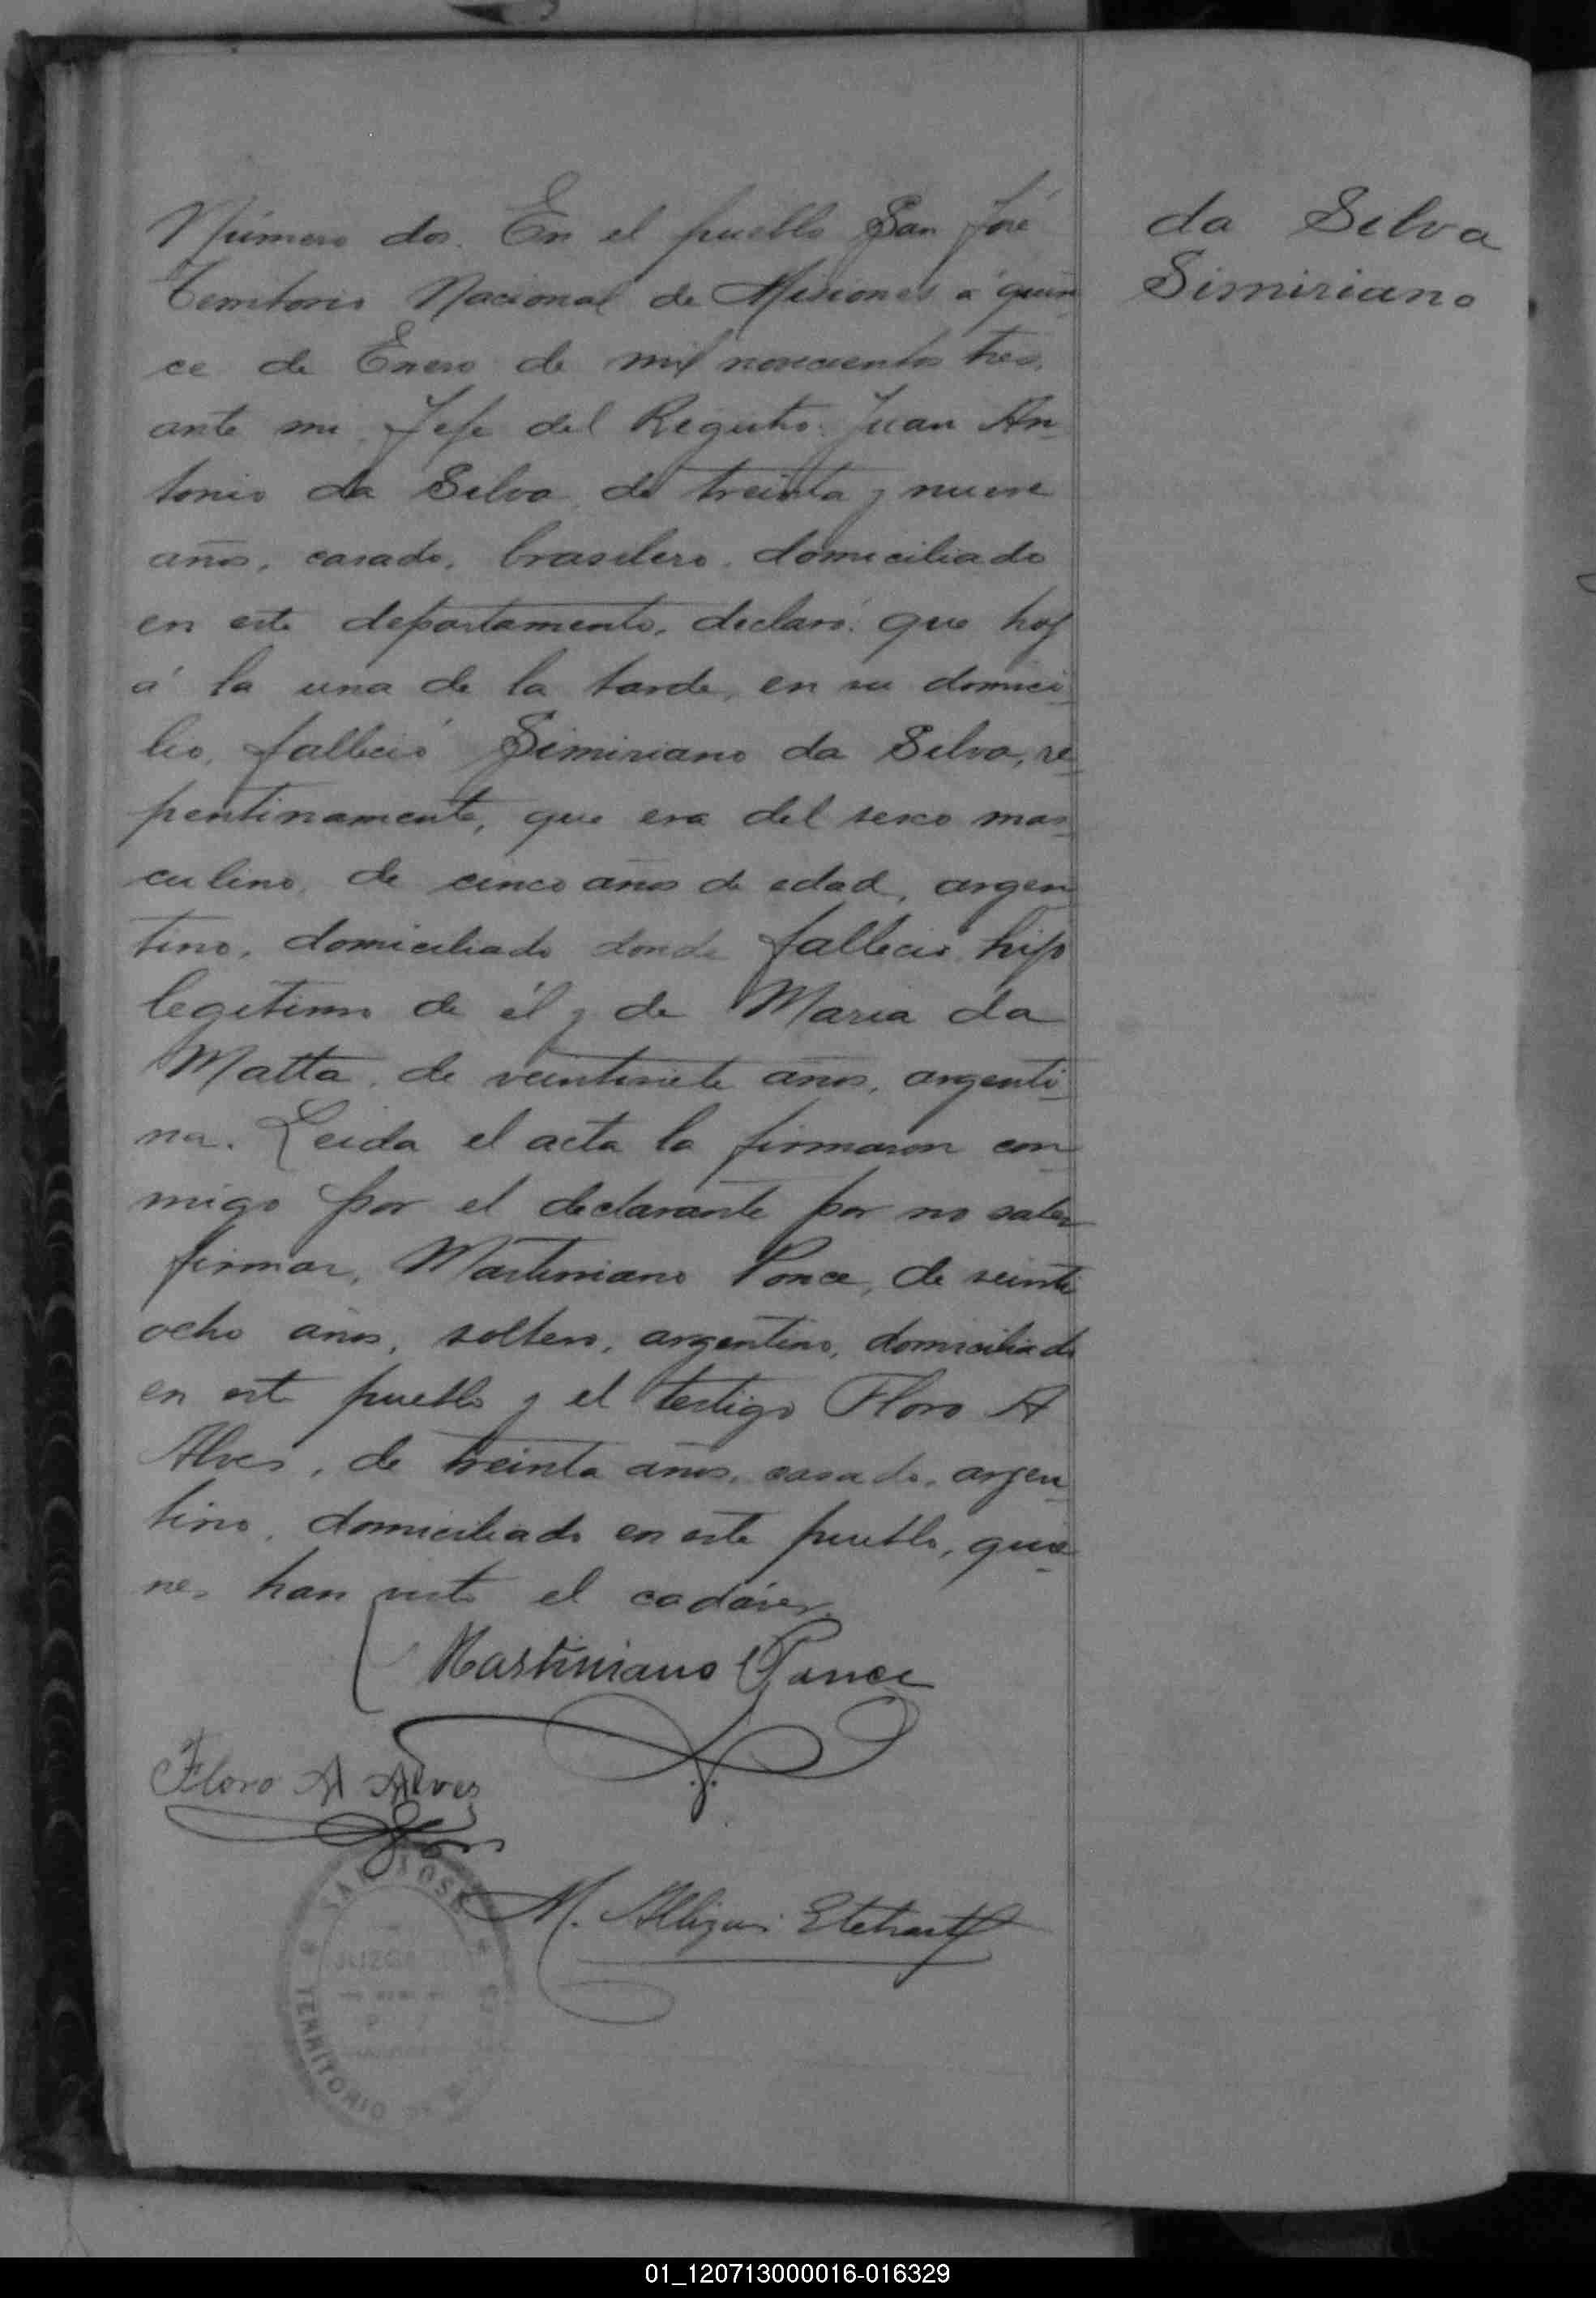 da Silva
Simiriano
Número dos. En el pueblo San José
Territorio Nacional de Misiones á quin
ce de Enero de mil novecientos tres,
ante mi, Jefe del Registro: Juan An
tonio da Silva, de treinta y nueve
años, casado, brasilero, domiciliado
en este departamento, declaró: que hoy
á la una de la tarde, en su domici
lio, falleció Simiriano da Silva, re
pentinamente, que era del sexo mas
culino, de cinco años de edad, argen
tino, domiciliado donde falleció, hijo
legítimo de él y de Maria da
Matta, de veintisiete años, argenti
na. Leida el acta la firmaron con
migo por el declarante por no saber
firmar, Martiniano Ponce, de veinti
ocho años, soltero, argentino, domiciliado
en este pueblo y el testigo Floro A
Alves, de treinta años, casado, argen
tino, domiciliado en este pueblo, quie
nes han visto el cadáver.
Martiniano Ponce
Floro A Alves
M.
SAN JOSE
JUZGA
TERRITORIO
01_120713000016-016329